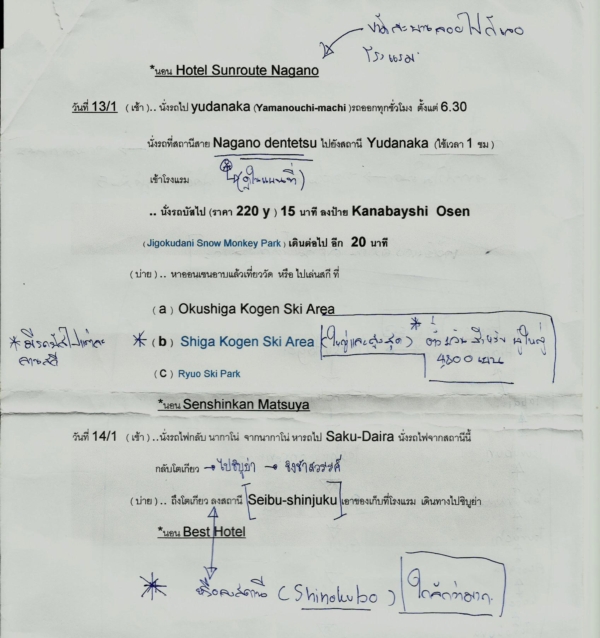 โรงแรม
*นอน Hotel Sunroute Nagano
วันที่ 13/1 (เช้า).. นั่งรถไป yudanaka (Yamanouchi-machi )รถออกทุกชั่วโมง ตั้งแต่ 6.30
นั่งรถที่สถานีสาย Nagano dentetsu ไปยังสถานี Yudanaka (ใช้เวลา 1 ชม)
เข้าโรงแรม (ดูในแผนที่)
.. นั่งรถบัสไป (ราคา 220 y ) 15 นาที ลงป้าย Kanabayshi Osen
(Jigokudani Snow Monkey Park ) เดินต่อไป อีก 20 นาที
(บ่าย).. หาออนเซนอาบแล้วเที่ยววัด หรือ ไปเล่นสกี ที่
(a) Okushiga Kogen Ski Area
* (b) Shiga Kogen Ski Area (ใหญ่และสูงสุด) * ผู้ใหญ่
4,800 เยน
(C) Ryuo Ski Park
*นอน Senshinkan Matsuya
วันที่ 14/1 (เช้า)..นั่งรถไฟกลับ นากาโน่ จากนากาโน่ หารถไป Saku-Daira นั่งรถไฟจากสถานีนี้
กลับโตเกียว → ไปชิบูย่า → ชิงช้าสวรรค์
(บ่าย).. ถึงโตเกียว ลงสถานี [Seibu-shinjuku] เอาของเก็บที่โรงแรม เดินทางไปชิบูย่า
*นอน Best Hotel
* หรือลงสถานี (Shinokubo) ใกล้กว่ามาก